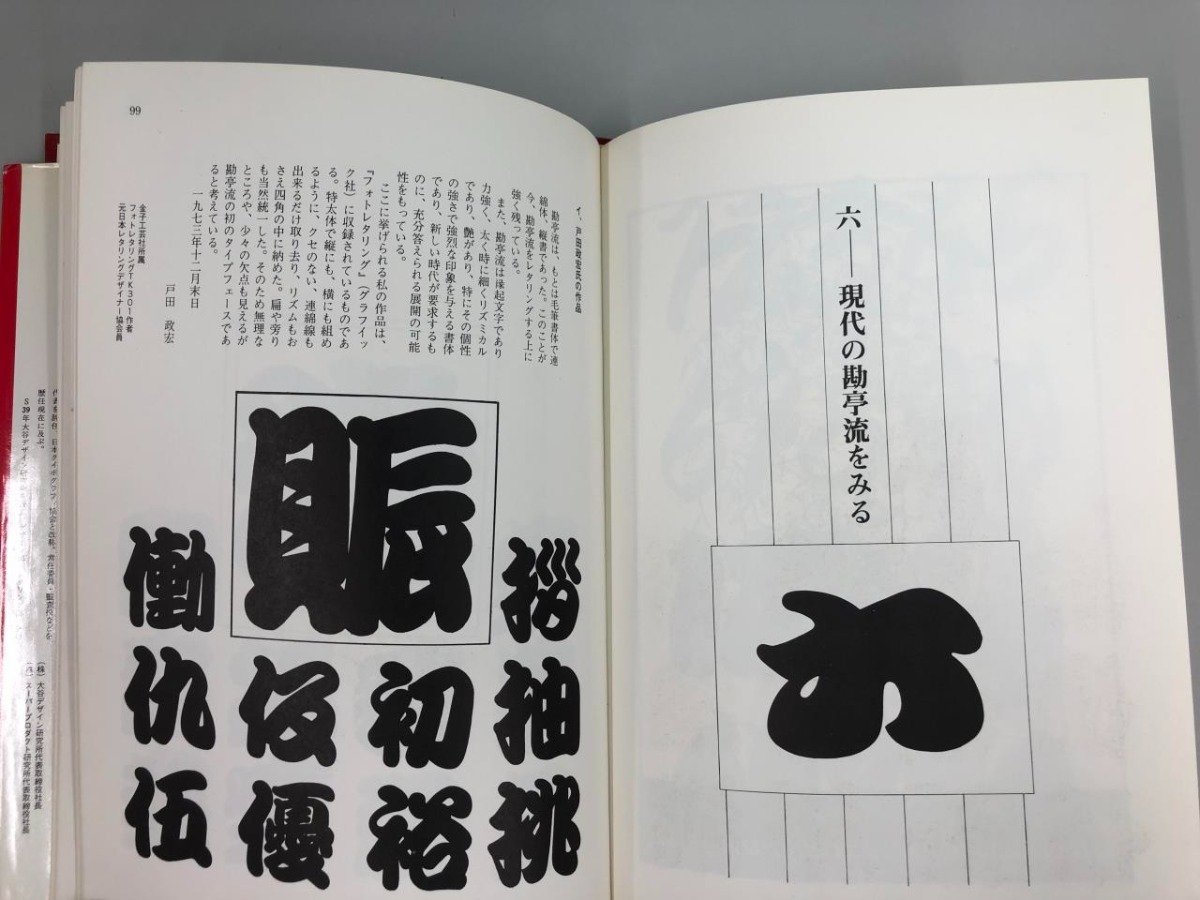 六──現代の勘亭流をみる
六
99
イ、戸田政宏氏の作品
勘亭流は、もとは毛筆書体で連
綿体、縦書であった。このことが
今、勘亭流をレタリングする上に
強く残っている。
また、勘亭流は縁起文字であり
力強く、太く時に細くリズミカル
であり、艶があり、特にその個性
の強さで強烈な印象を与える書体
であり、新しい時代が要求するも
のに、充分答えられる展開の可能
性をもっている。
ここに挙げられる私の作品は、
『フォトレタリング』(グラフイッ
ク社)に収録されているものであ
る。特太体で縦にも、横にも組め
るように、クセのない、連綿線も
出来るだけ取り去り、リズムもお
さえ四角の中に納めた。扁や旁り
も当然統一した。そのため無理な
ところや、少々の欠点も見えるが
勘亭流の初のタイプフェースであ
ると考えている。
一九七三年十二月末日
戸田 政宏
金子工芸社所属
フォトレタリングTK301作者
元日本レタリングデザイナー協会員
拶抽挑
賑
初裕
仮優
働仇伍
歴任現在に及ぶ。
S39年大谷デザイン研
(株)大谷デザイン研究所代表取締役社長
(株)スーパープロダクト研究所代表取締役社長